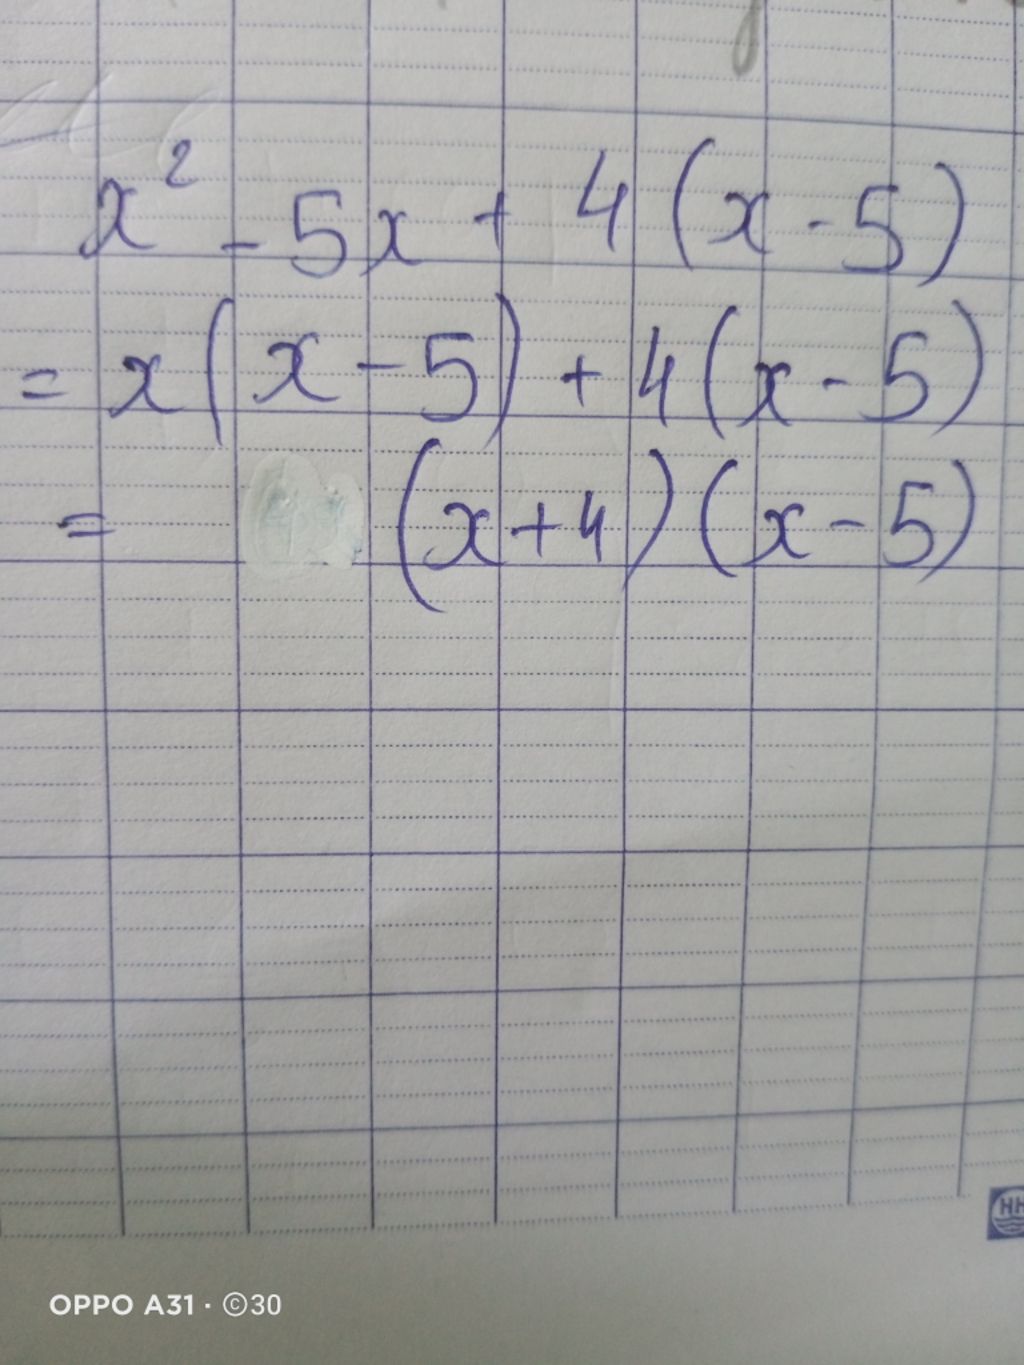 x² - 5x + 4(x - 5)
= x(x - 5) + 4(x - 5)
= (x + 4)(x - 5)
HH
OPPO A31 · ©30